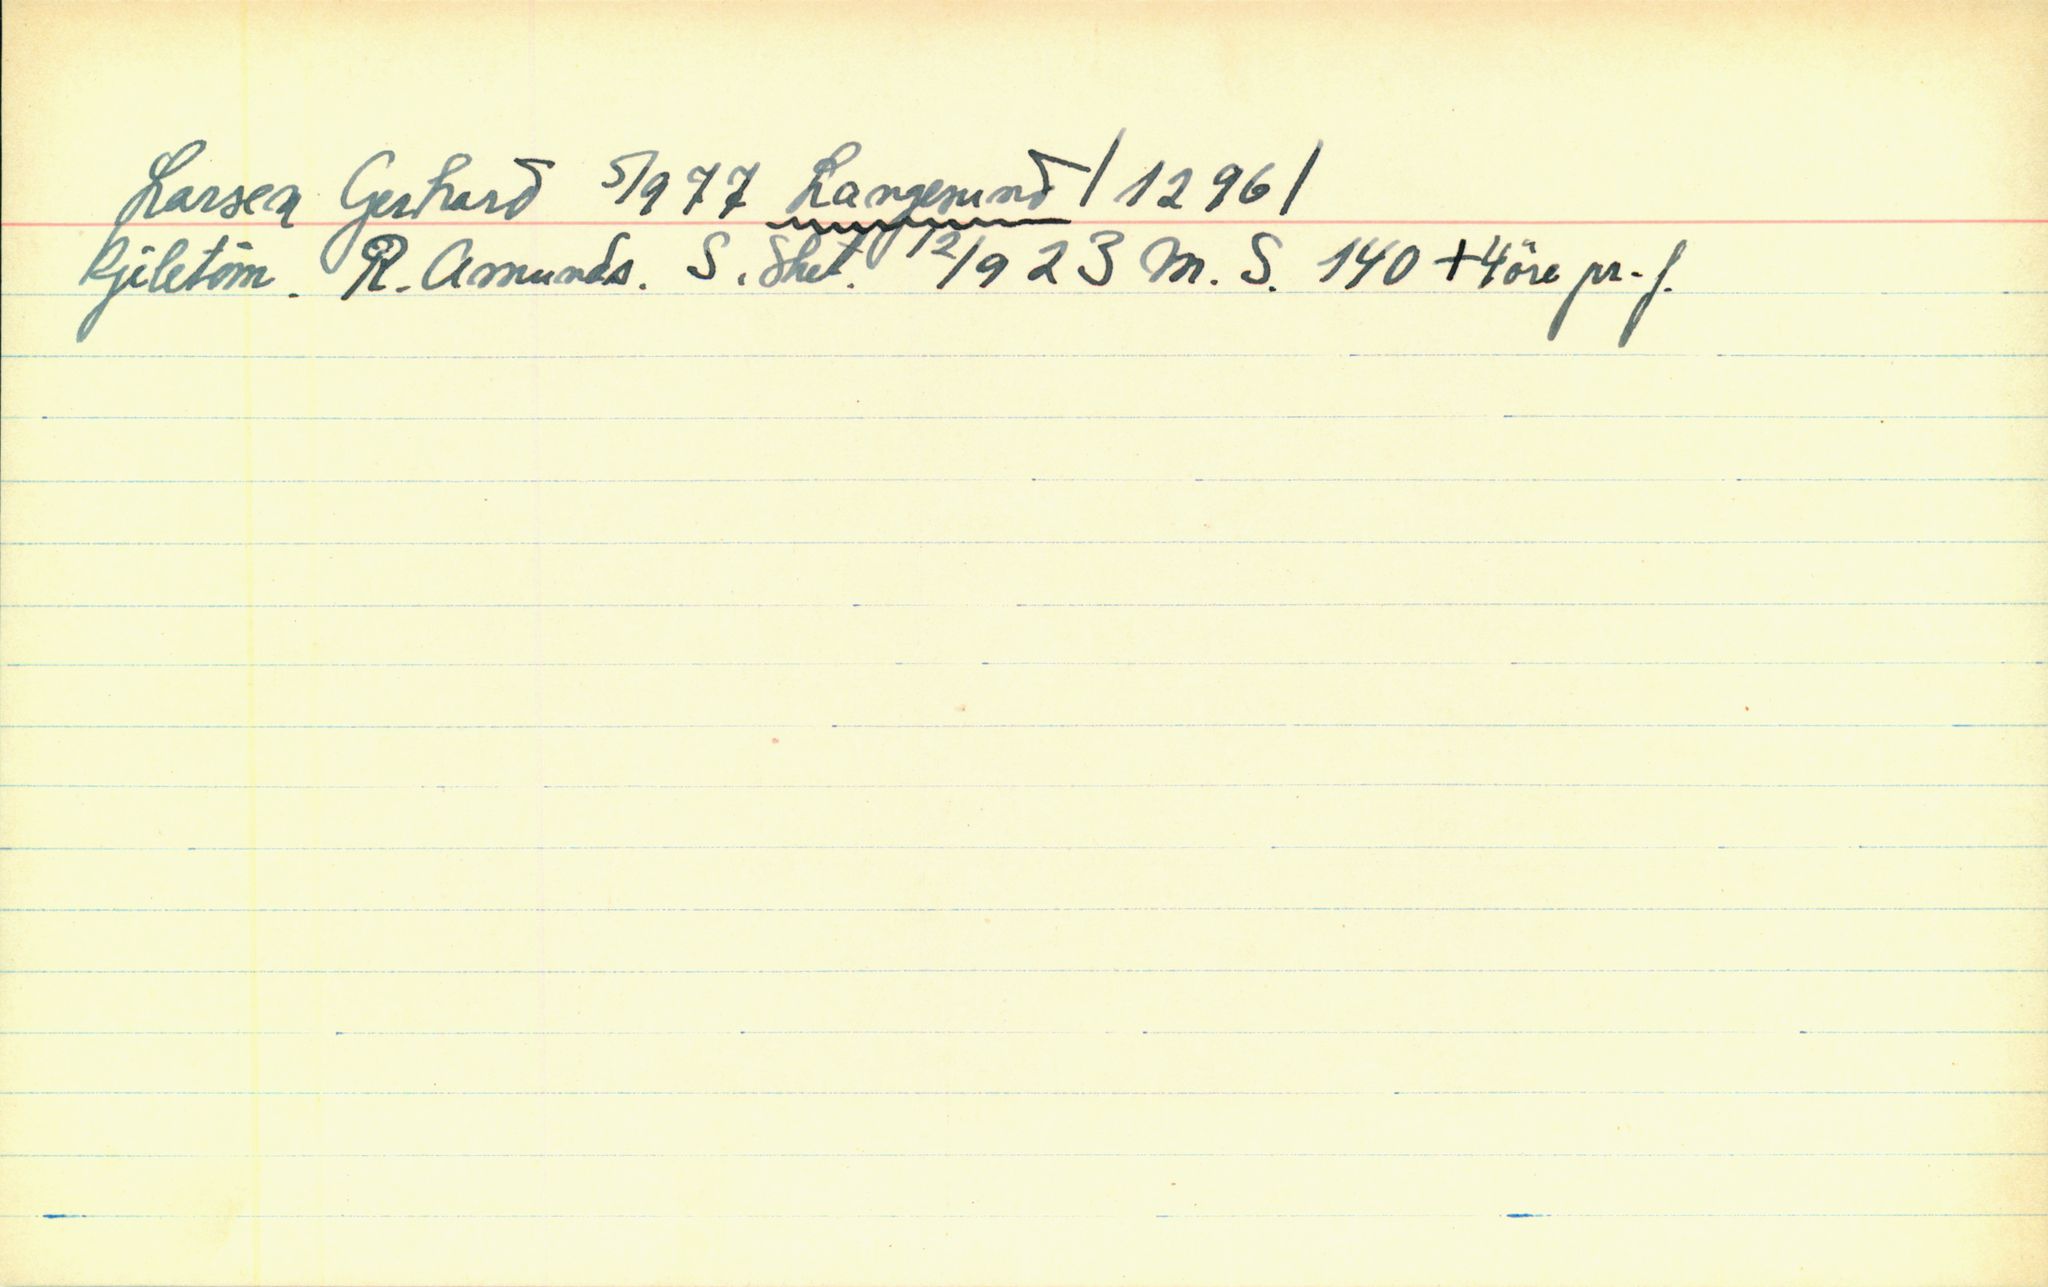 Larsen Gerhard 5/9 77 Langesund / 1296 /
Kjiletöm. R. Amunds. S. Shet. 12/9 23 M. S. 140 + 4 öre pr. f.